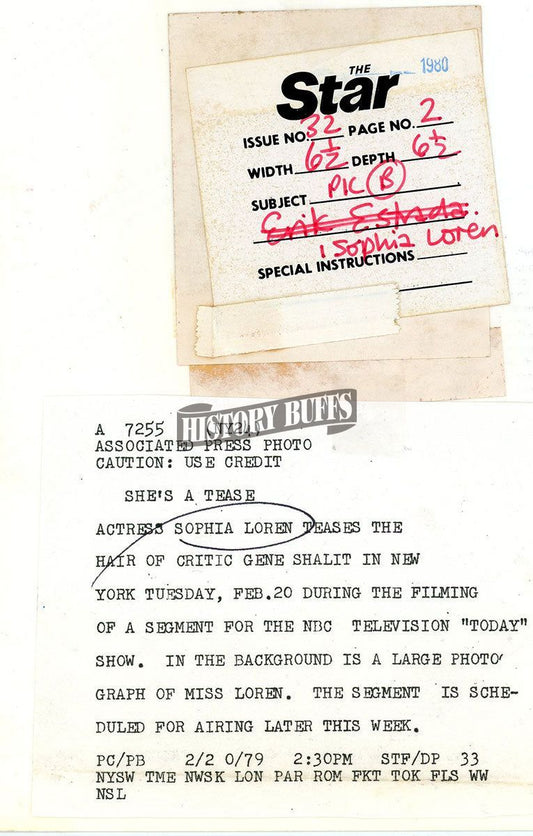 THE 1980
Star
ISSUE NO. 32 PAGE NO. 2
WIDTH 6½ DEPTH 6½
SUBJECT PIC B
Erik Estrada.
1 Sophia Loren
SPECIAL INSTRUCTIONS
HISTORY BUFFS
A 7255 (NY24)
ASSOCIATED PRESS PHOTO
CAUTION: USE CREDIT
SHE'S A TEASE
ACTRESS SOPHIA LOREN TEASES THE
HAIR OF CRITIC GENE SHALIT IN NEW
YORK TUESDAY, FEB.20 DURING THE FILMING
OF A SEGMENT FOR THE NBC TELEVISION "TODAY"
SHOW. IN THE BACKGROUND IS A LARGE PHOTO
GRAPH OF MISS LOREN. THE SEGMENT IS SCHE-
DULED FOR AIRING LATER THIS WEEK.
PC/PB 2/2 0/79 2:30PM STF/DP 33
NYSW TME NWSK LON PAR ROM FKT TOK FLS WW
NSL